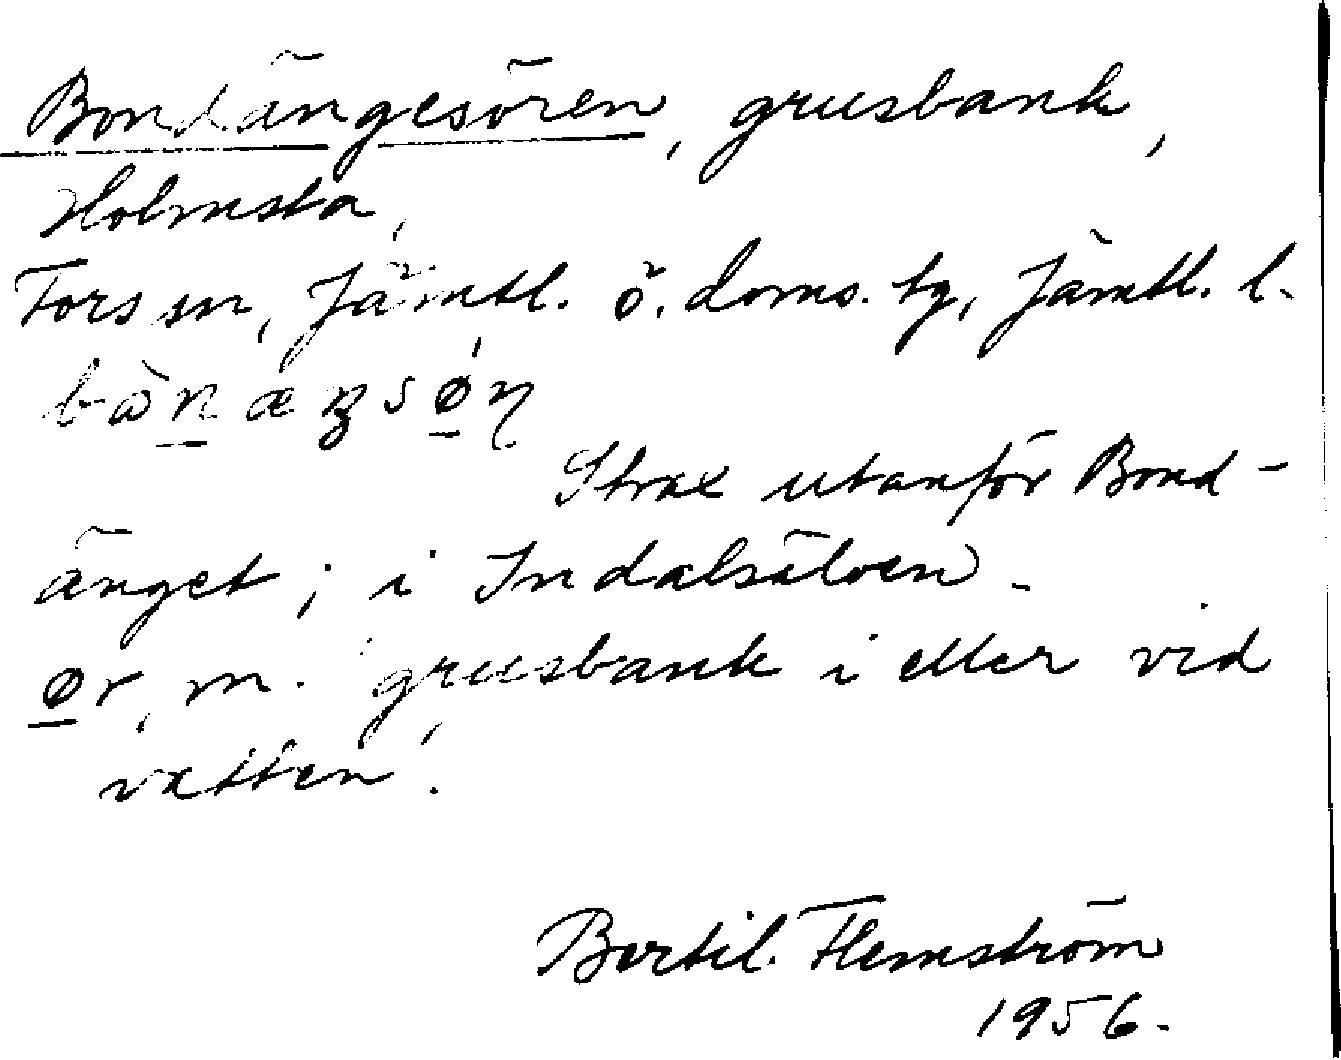 Bondängesören, grusbank,
Holmsta,
Fors sn, Jämtl. ö. doms. tg, Jämtl. l.
Strax utanför Bond-
änget; i Indalsälven.
ør, m. 'grusbank i eller vid
vatten'.
Bertil Flemström
1956.